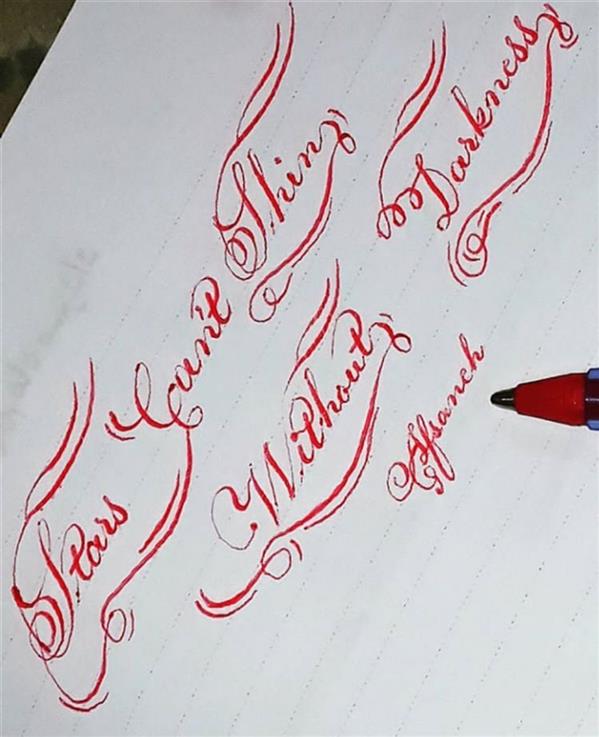 Stars Can't Shin
Without Darkness
Afsaneh